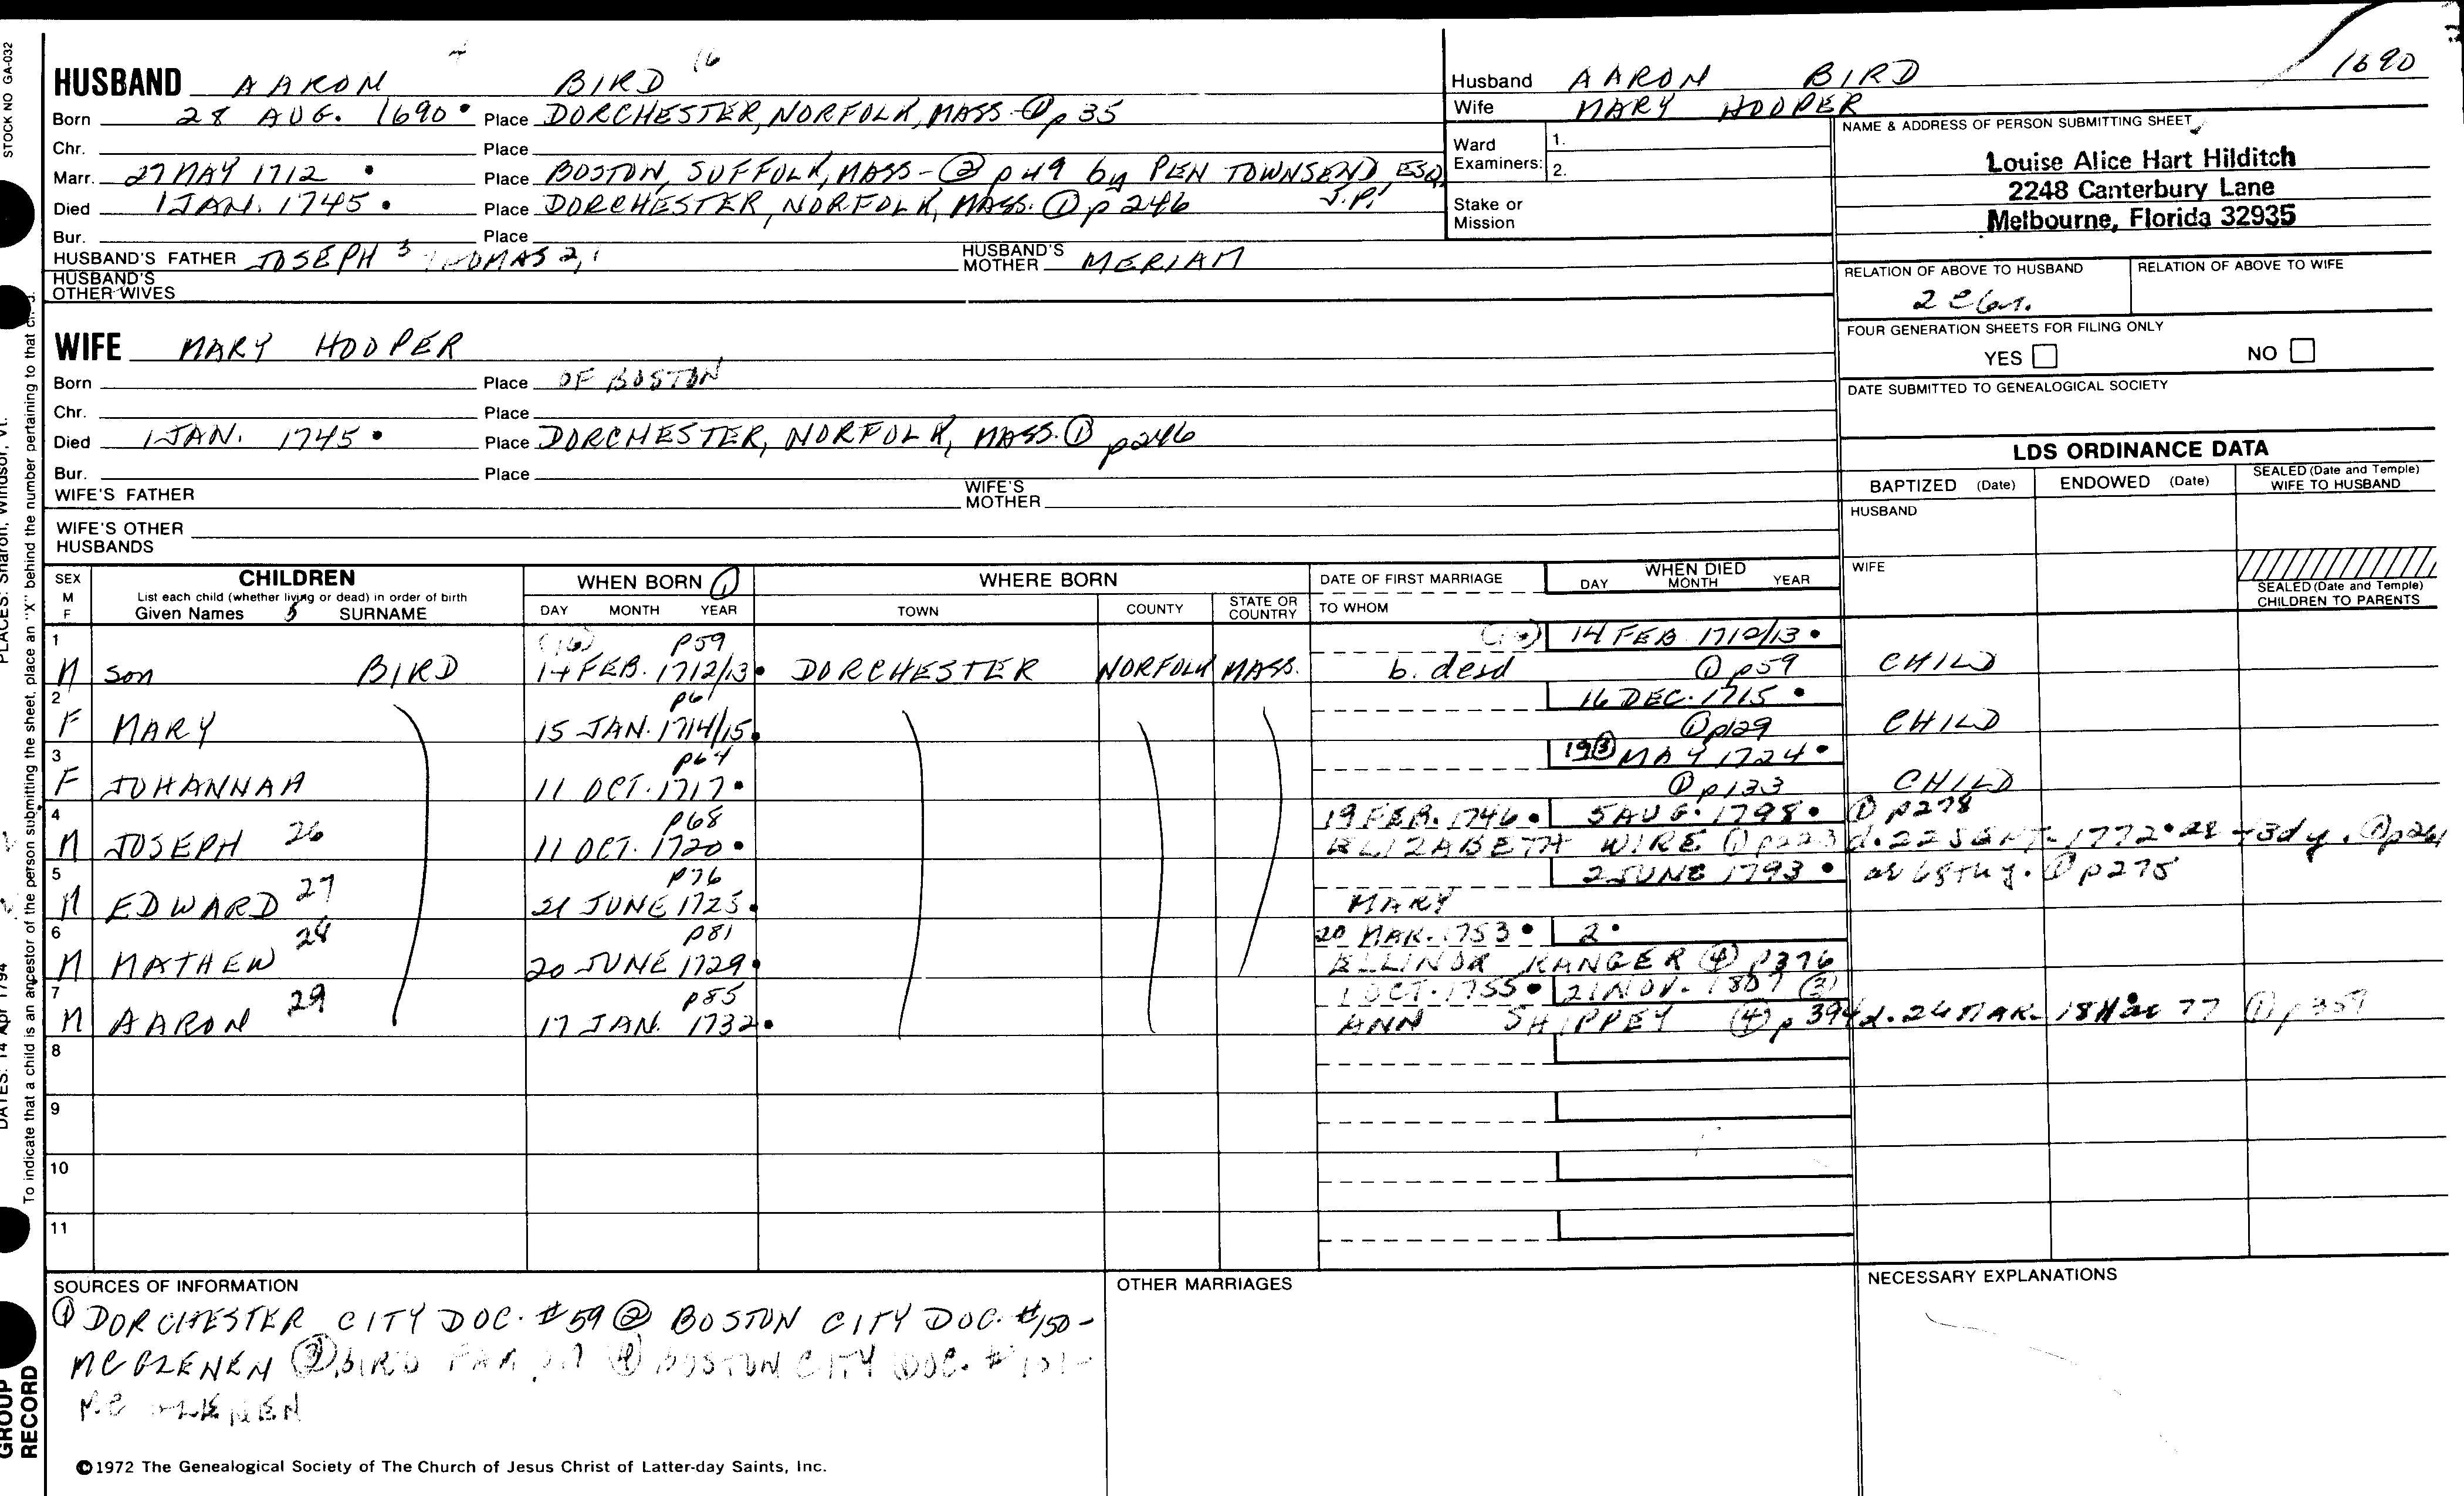 STOCK NO GA-032
HUSBAND AARON BIRD 16
Born 28 AUG. 1690 • Place DORCHESTER, NORFOLK, MASS. ① p 35
Chr. Place
Marr. 27 MAY 1712 • Place BOSTON, SUFFOLK, MASS - ② p 49 by PEN TOWNSEND, ESQ. J.P.
Died 1 JAN. 1745 • Place DORCHESTER, NORFOLK, MASS. ① p 246
Bur. Place
HUSBAND'S FATHER JOSEPH 3 THOMAS 2, 1 HUSBAND'S MOTHER MERIAM
HUSBAND'S OTHER WIVES
Husband AARON BIRD 1690
Wife MARY HOOPER
Ward Examiners: 1.
2.
Stake or Mission
NAME & ADDRESS OF PERSON SUBMITTING SHEET
Louise Alice Hart Hilditch
2248 Canterbury Lane
Melbourne, Florida 32935
RELATION OF ABOVE TO HUSBAND RELATION OF ABOVE TO WIFE
FOUR GENERATION SHEETS FOR FILING ONLY
YES NO
DATE SUBMITTED TO GENEALOGICAL SOCIETY
WIFE MARY HOOPER
Born Place OF BOSTON
Chr. Place
Died 1 JAN. 1745 • Place DORCHESTER, NORFOLK, MASS. ① p246
Bur. Place
WIFE'S FATHER WIFE'S MOTHER
WIFE'S OTHER HUSBANDS
LDS ORDINANCE DATA
BAPTIZED (Date) ENDOWED (Date) SEALED (Date and Temple) WIFE TO HUSBAND
HUSBAND
WIFE
SEALED (Date and Temple) CHILDREN TO PARENTS
SEX M F
CHILDREN
List each child (whether living or dead) in order of birth
Given Names 5 SURNAME
WHEN BORN ①
DAY MONTH YEAR
WHERE BORN
TOWN COUNTY STATE OR COUNTRY
DATE OF FIRST MARRIAGE
TO WHOM
WHEN DIED
DAY MONTH YEAR
1 (16) p59 14 FEB 1712/13 •
M son BIRD 14 FEB. 1712/13 • DORCHESTER NORFOLK MASS. b. dead ① p59 CHILD
2 p61 16 DEC. 1715 •
F MARY 15 JAN. 1714/15 • ① p129 CHILD
3 p64 19 ③ MAY 1724 •
F JOHANNAH 11 OCT. 1717 • ① p133 CHILD
4 p68 19 FEB. 1746 • 5 AUG. 1798 • ① p278
M JOSEPH 26 11 OCT. 1720 • ELIZABETH WIRE ① p223 d. 22 SEPT. 1772 •
5 p76 2 JUNE 1793 • ae 68th y. ① p275
M EDWARD 27 21 JUNE 1725 • MARY
6 p81 20 MAR. 1753 • 2 •
M MATHEW 28 20 JUNE 1729 • ELLINOR RANGER ④ p376
7 p85 1 OCT. 1755 • 21 NOV. 1807 ③
M AARON 29 17 JAN. 1732 • ANN SHIPPEY ④ p 394 d. 26 MAR. ae 77 ① p359
8
9
10
11
SOURCES OF INFORMATION
① DORCHESTER CITY DOC. #59 ② BOSTON CITY DOC. #150 -
MCGLENEN ③ BIRD FAM ④ BOSTON CITY DOC. #101 -
MCGLENEN
OTHER MARRIAGES
NECESSARY EXPLANATIONS
©1972 The Genealogical Society of The Church of Jesus Christ of Latter-day Saints, Inc.
To indicate that a child is an ancestor of the person submitting the sheet, place an "X" behind the number pertaining to that
PLACES: Sharon, Windsor, Vt.
DATES: 14 Apr 1794
GROUP RECORD